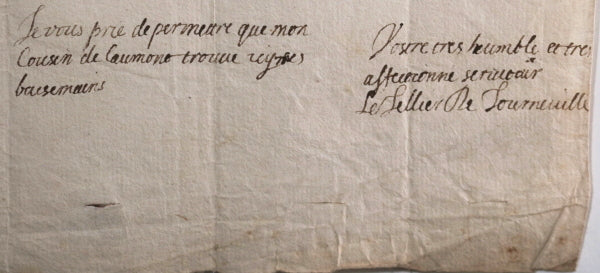 Je vous prie de permettre que mon
Cousin de Caumont trouve icy ses
baisemains
Vostre tres humble et tres
affectionne serviteur
Le Tellier De Tourneville